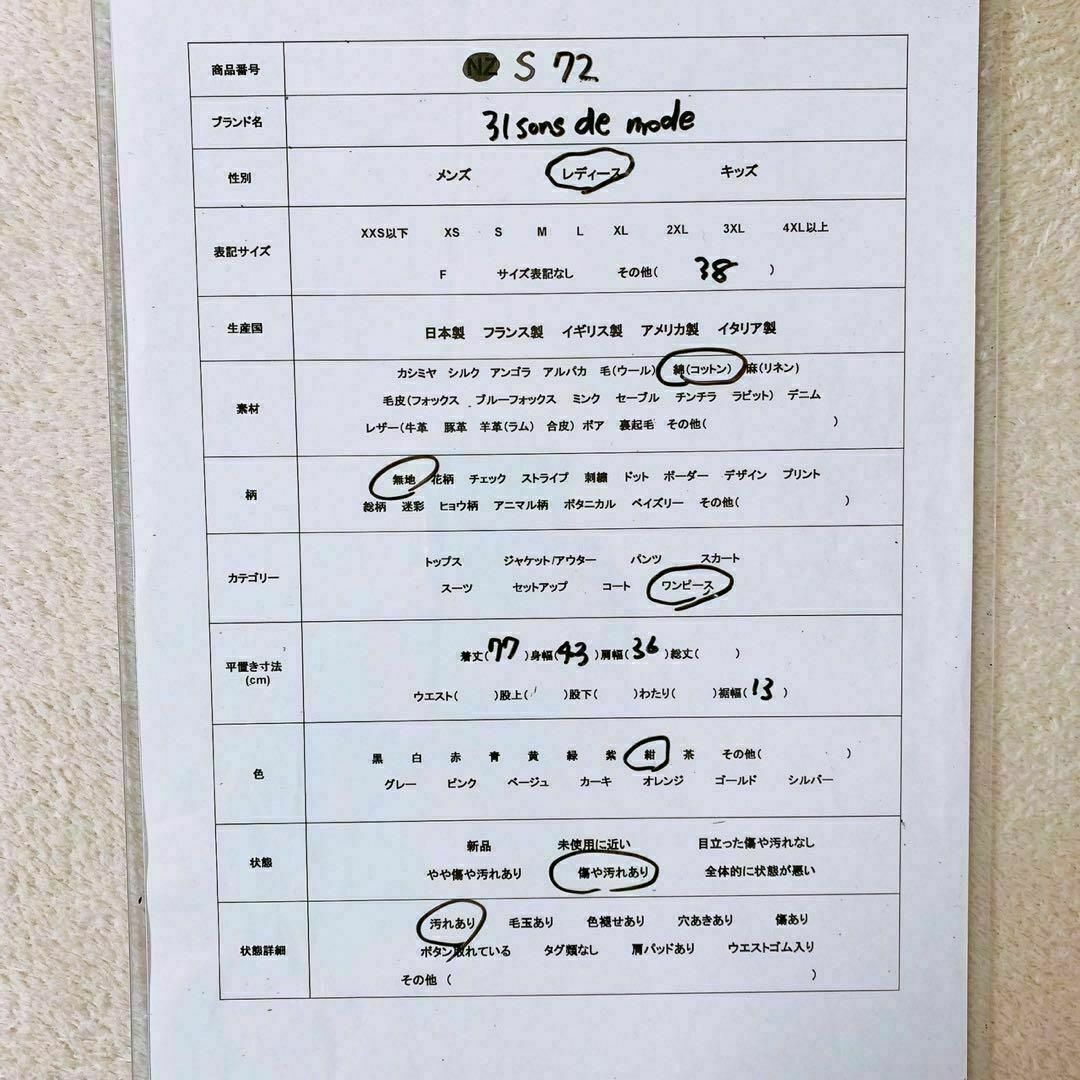 商品番号 NZ S 72
ブランド名 31 sons de mode
性別 メンズ レディース キッズ
表記サイズ
XXS以下 XS S M L XL 2XL 3XL 4XL以上
F サイズ表記なし その他( 38 )
生産国 日本製 フランス製 イギリス製 アメリカ製 イタリア製
素材
カシミヤ シルク アンゴラ アルパカ 毛(ウール) 綿(コットン) 麻(リネン)
毛皮(フォックス ブルーフォックス ミンク セーブル チンチラ ラビット) デニム
レザー(牛革 豚革 羊革(ラム) 合皮) ボア 裏起毛 その他( )
柄
無地 花柄 チェック ストライプ 刺繍 ドット ボーダー デザイン プリント
総柄 迷彩 ヒョウ柄 アニマル柄 ボタニカル ペイズリー その他( )
カテゴリー
トップス ジャケット/アウター パンツ スカート
スーツ セットアップ コート ワンピース
平置き寸法
(cm)
着丈(77)身幅(43)肩幅(36)総丈( )
ウエスト( )股上( )股下( )わたり( )裾幅(13)
色
黒 白 赤 青 黄 緑 紫 紺 茶 その他( )
グレー ピンク ベージュ カーキ オレンジ ゴールド シルバー
状態
新品 未使用に近い 目立った傷や汚れなし
やや傷や汚れあり 傷や汚れあり 全体的に状態が悪い
状態詳細
汚れあり 毛玉あり 色褪せあり 穴あきあり 傷あり
ボタン取れている タグ類なし 肩パッドあり ウエストゴム入り
その他 ( )